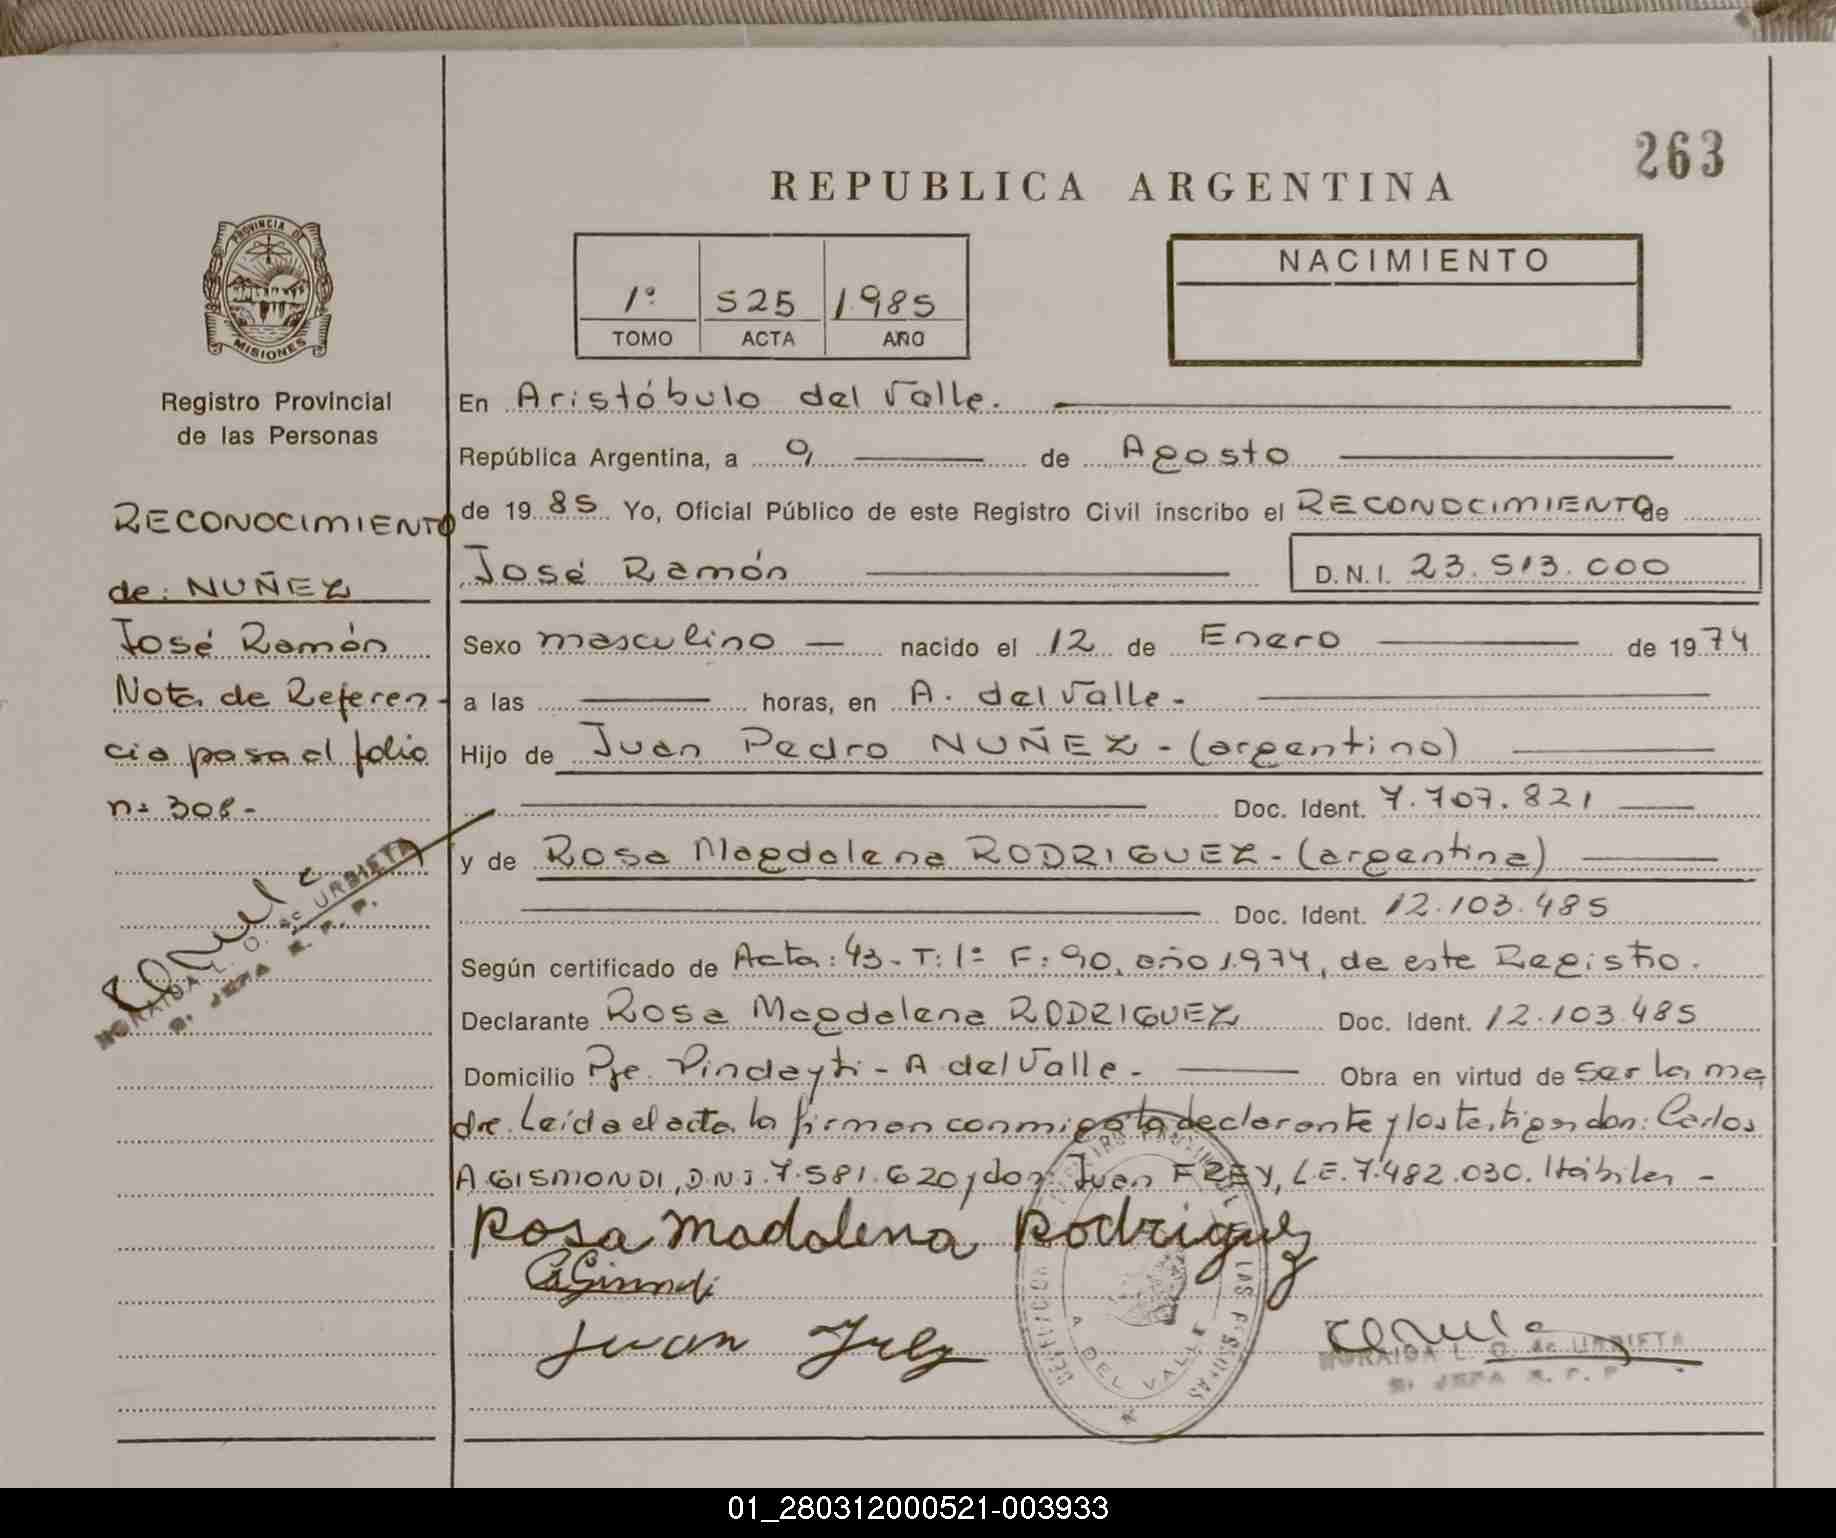 263
REPUBLICA ARGENTINA
PROVINCIA DE
MISIONES
Registro Provincial
de las Personas
1º 525 1.985
TOMO ACTA AÑO
NACIMIENTO
En Aristóbulo del Valle.
República Argentina, a 9 de Agosto
de 1985 Yo, Oficial Público de este Registro Civil inscribo el RECONOCIMIENTO de
José Ramón D.N.I. 23.513.000
Sexo masculino nacido el 12 de Enero de 1974
a las horas, en A. del Valle.
Hijo de Juan Pedro NUÑEZ - (argentino)
Doc. Ident. 7.707.821
y de Rosa Magdalena RODRIGUEZ - (argentina)
Doc. Ident. 12.103.485
Según certificado de Acta: 43 - T: 1º F: 90, año 1.974, de este Registro.
Declarante Rosa Magdalena RODRIGUEZ Doc. Ident. 12.103.485
Domicilio Pje. Pindayti - A. del Valle - Obra en virtud de ser la ma
dre. Leída el acta la firman conmigo la declarante y los testigos don: Carlos
A GISMONDI, D.N.I. 7.581.620 y don Juan FREY, L.E. 7.482.030. Hábiles -
Rosa Madalena Rodriguez
Juan Frey
A. DEL VALLE
NORAIDA L. O. de URBIETA
RECONOCIMIENTO
de: NUÑEZ
José Ramón
Nota de Referen-
cia pasa al folio
nº 308-
NORAIDA L. O. de URBIETA
01_280312000521-003933